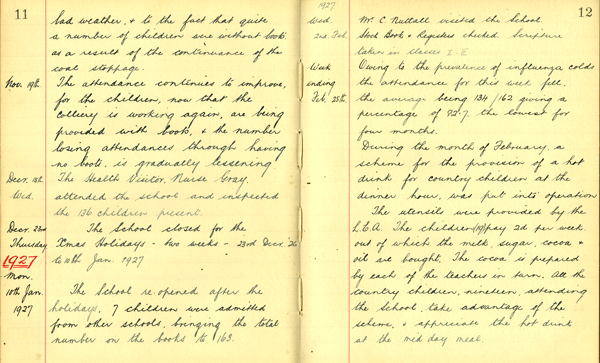 11
bad weather, & to the fact that quite
a number of children are without boots
as a result of the continuance of the
coal stoppage.
Nov. 19th. The attendance continues to improve,
for the children, now that the
colliery is working again, are being
provided with boots, & the number
losing attendances through having
no boots, is gradually lessening
Decr. 1st. The Health Visitor, Nurse Gray,
Wed. attended the school and inspected
the 136 children present.
Decr. 23rd The School closed for the
Thursday Xmas Holidays - two weeks - 23rd Decr. 26
1927 to 10th Jan. 1927
Mon.
10th Jan. The School re-opened after the
1927 holidays. 7 children were admitted
from other schools, bringing the total
number on the books to 163.
12
1927
Wed. Mr. C Nuttall visited the School.
2nd Feb. Stock Book & Registers checked. Scripture
taken in classes I - E
Week Owing to the prevalence of influenza colds
ending the attendance for this week fell,
Feb. 25th. the average being 134/162 giving a
percentage of 82.7, the lowest for
four months.
During the month of February, a
scheme for the provision of a hot
drink for country children at the
dinner hour, was put into operation
The utensils were provided by the
L.E.A. The children (19) pay 2d per week,
out of which the milk, sugar, cocoa &
oil are bought. The cocoa is prepared
by each of the teachers in turn. All the
country children, nineteen, attending
the School, take advantage of the
scheme, & appreciate the hot drink
at the mid day meal.